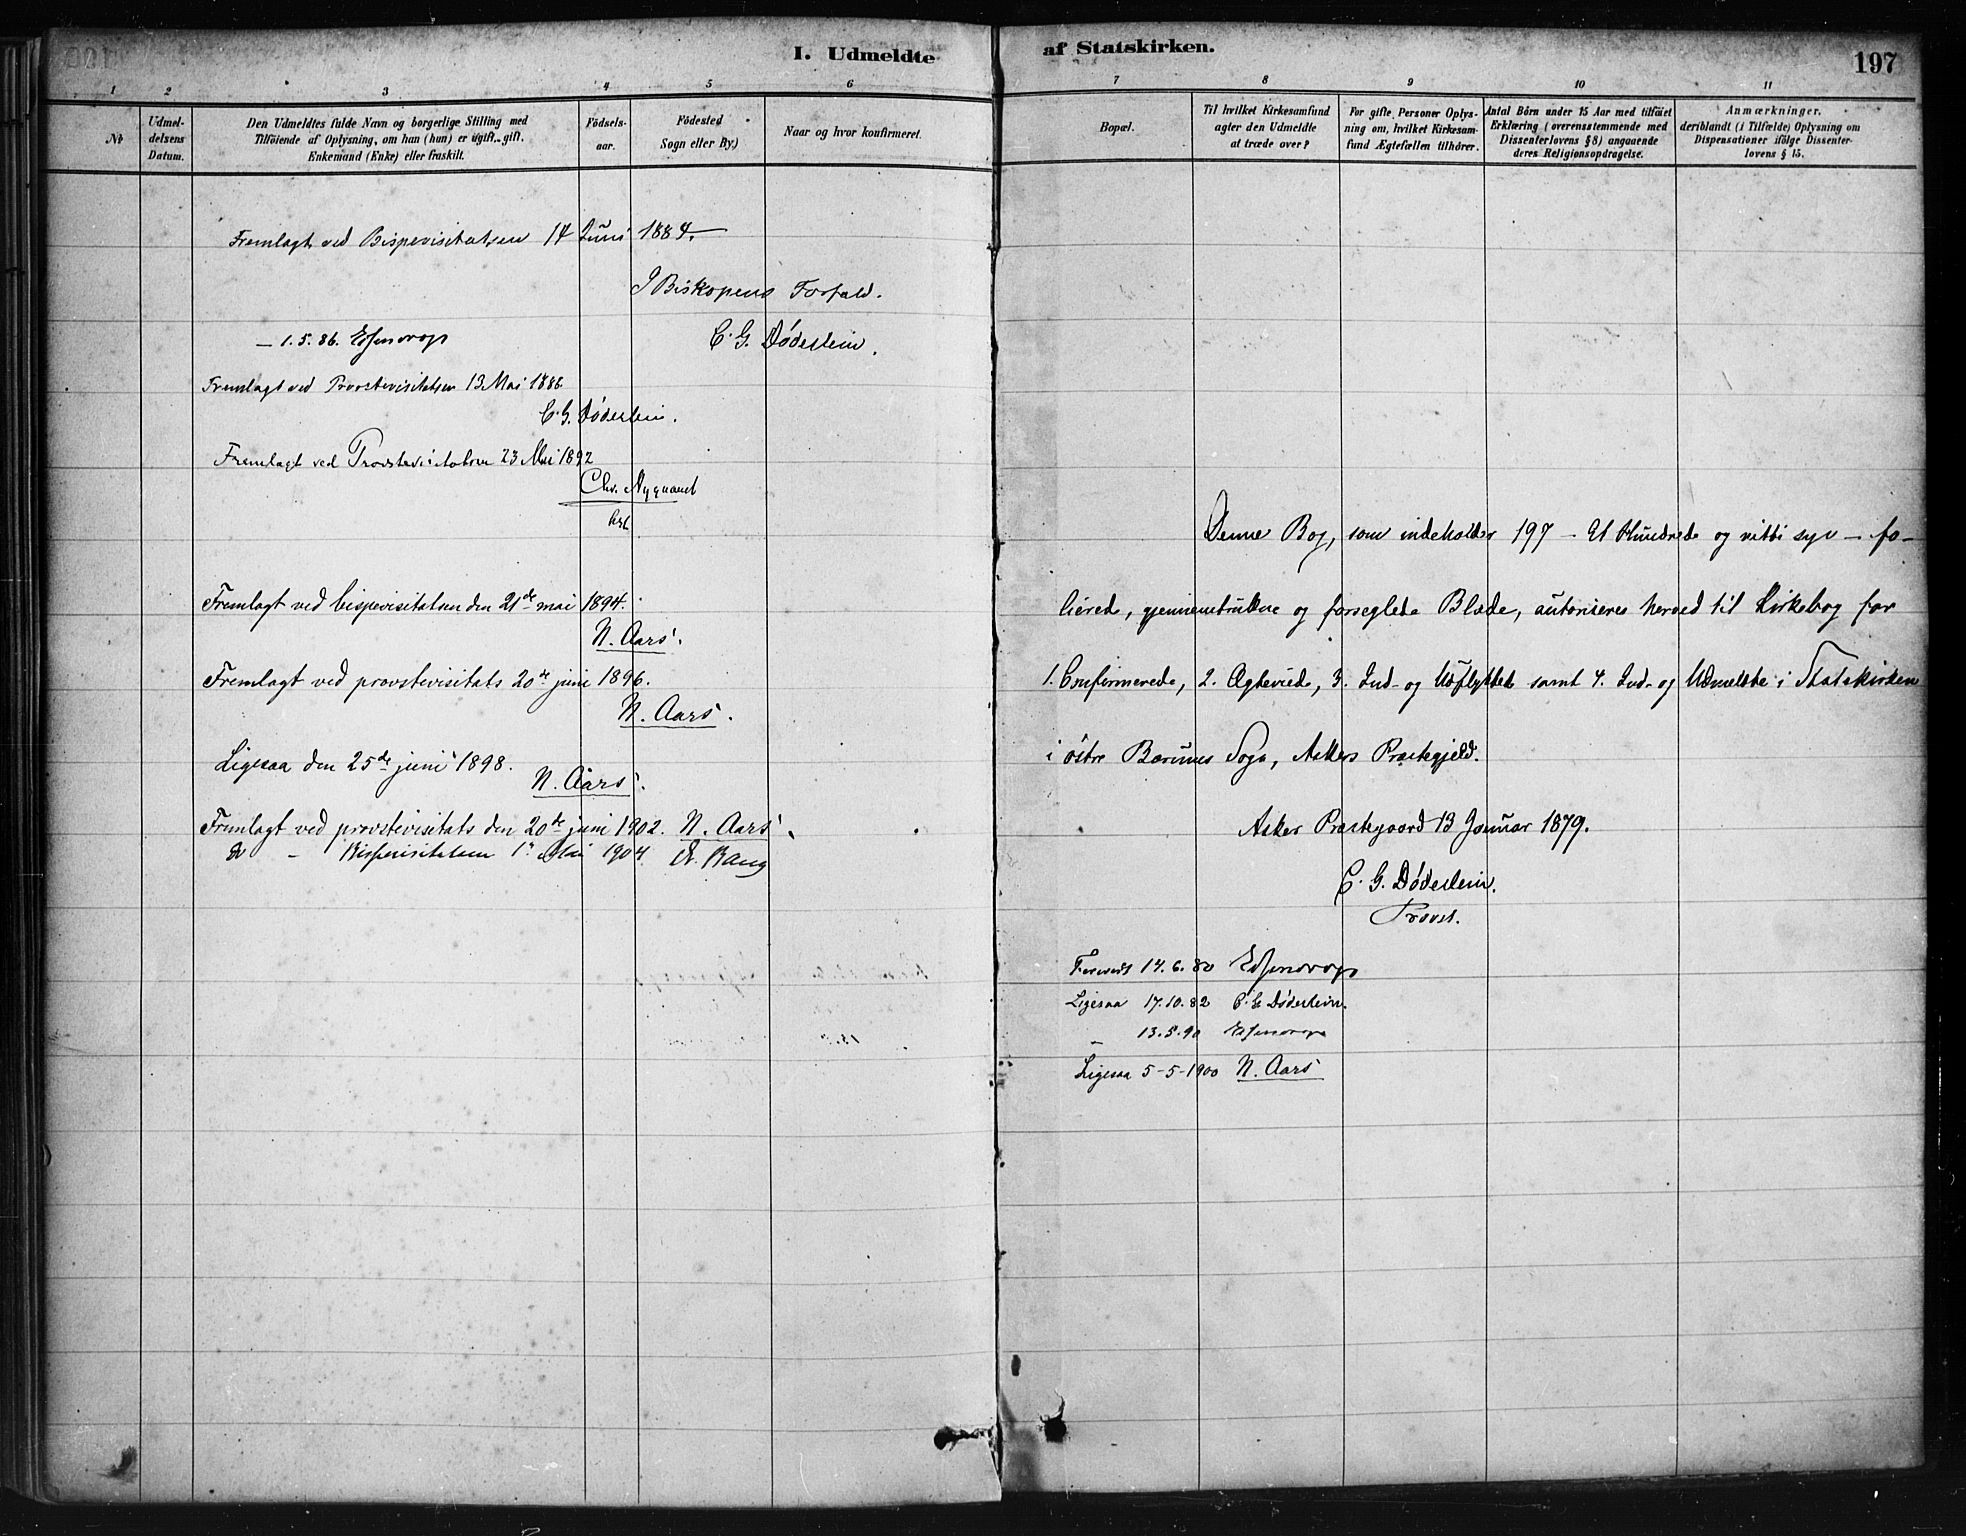 I. Udmeldte af Statskirken.
197
1 2 3 4 5 6 7 8 9 10 11
№
Udmel-
delsens
Datum.
Den Udmeldtes fulde Navn og borgerlige Stilling med
Tilföiende af Oplysning, om han (hun) er ugift, gift,
Enkemand (Enke) eller fraskilt.
Födsels-
aar.
Födested
Sogn eller By.)
Naar og hvor konfirmeret.
Bopæl.
Til hvilket Kirkesamfund
agter den Udmeldte
at træde over?
For gifte Personer Oplys-
ning om, hvilket Kirkesam-
fund Ægtefællen tilhörer.
Antal Börn under 15 Aar med tilföiet
Erklæring (overensstemmende med
Dissenterlovens § 8) angaaende
deres Religionsopdragelse.
Anmærkninger,
deriblandt (i Tilfælde) Oplysning om
Dispensationer ifölge Dissenter-
lovens § 15.
Fremlagt ved Bispevisitatsen 14 Juni 1884.
I Biskopens Forfald.
C. G. Døderlein.
— 1.5.86. Essendrop
Fremlagt ved Provstevisitatsen 13 Mai 1886
C. G. Døderlein.
Fremlagt ved Provstevisitatsen 23 Mai 1892
Chr. Nyquaist
Fremlagt ved bispevisitatsen den 21de mai 1894.
N. Aars.
Fremlagt ved provstevisitats 20de juni 1896.
N. Aars.
Ligesaa den 25de juni 1898.
N. Aars.
Fremlagt ved provstevisitats den 20de juni 1902. N. Aars.
— Bispevisitatsen 1 Mai 1904 A. Bang
Denne Bog, som indeholder 197 — Et Hundrede og nitti syv — fo-
lierede, gjennemtrukne og forseglede Blade, autoriseres herved til Kirkebog for
1. Confirmerede, 2. Egteviede, 3. Ind- og Udflyttede samt 4. Ind- og Udmeldte i Statskirken
i østre Bærums Sogn, Askers Præstegjeld.
Asker Præstegaard 13 Januar 1879.
C. G. Døderlein.
Provst.
Forevist 14.6.80 Essendrop
Ligesaa 17.10.82 C. G. Døderlein.
— 13.5.90 Essendrop
Ligesaa 5-5-1900 N. Aars